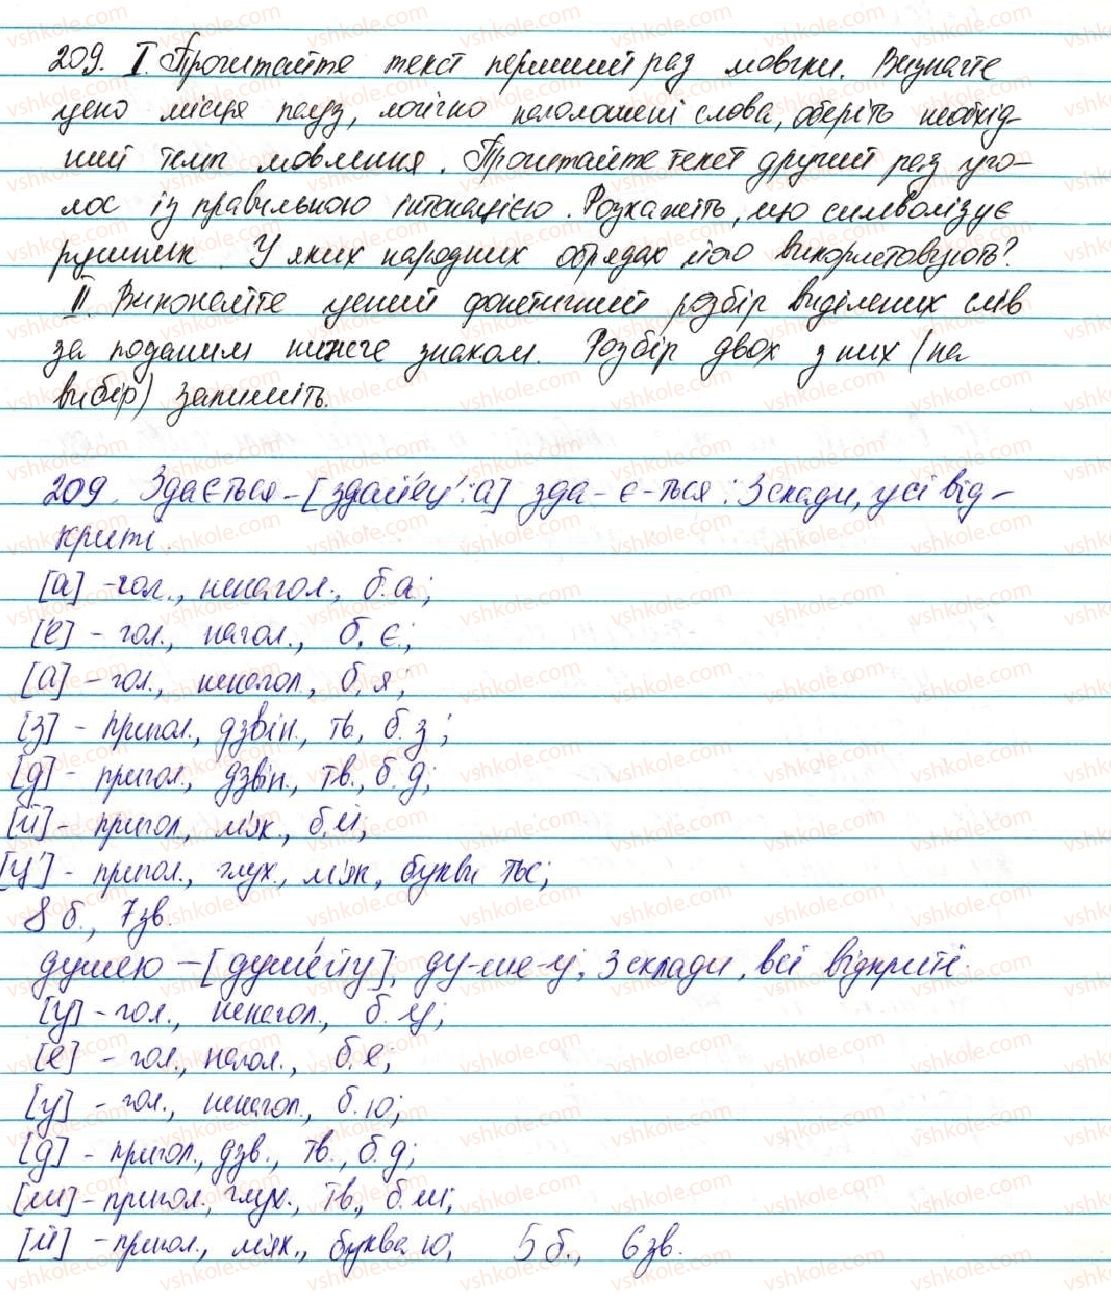 209. I. Прочитайте текст перший раз мовчки. Визначте
цено місця пауз, логічно наголошені слова, оберіть необхід-
ний темп мовлення. Прочитайте текст другий раз уго-
лос із правильною інтонацією. Розкажіть, що символізує
рушник. У яких народних обрядах його використовують?
II. Виконайте усний фонетичний розбір виділених слів
за поданим нижче знаком. Розбір двох з них (на
вибір) запишіть.
209. Здається - [здайе́ц':а] зда-є-ться; 3 склади, усі від-
криті.
[а] - гол., ненагол., б.а;
[е́] - гол., нагол., б. є;
[а] - гол., ненагол., б. я;
[з] - пригол., дзвін., тв, б. з;
[д] - пригол., дзвін., тв., б. д;
[й] - пригол., м'як., б.й;
[ц'] - пригол., глух., м'як, букви тьс;
8 б., 7 зв.
душею - [душе́йу]; ду-ше-у, 3 склади, всі відкриті.
[у] - гол., ненагол., б. у;
[е́] - гол., нагол., б. е;
[у] - гол., ненагол., б. ю;
[д] - пригол., дзв., тв., б. д;
[ш] - пригол., глух., тв., б. ш;
[й] - пригол., м'як., буква ю, 5 б., 6 зв.
vshkole.com